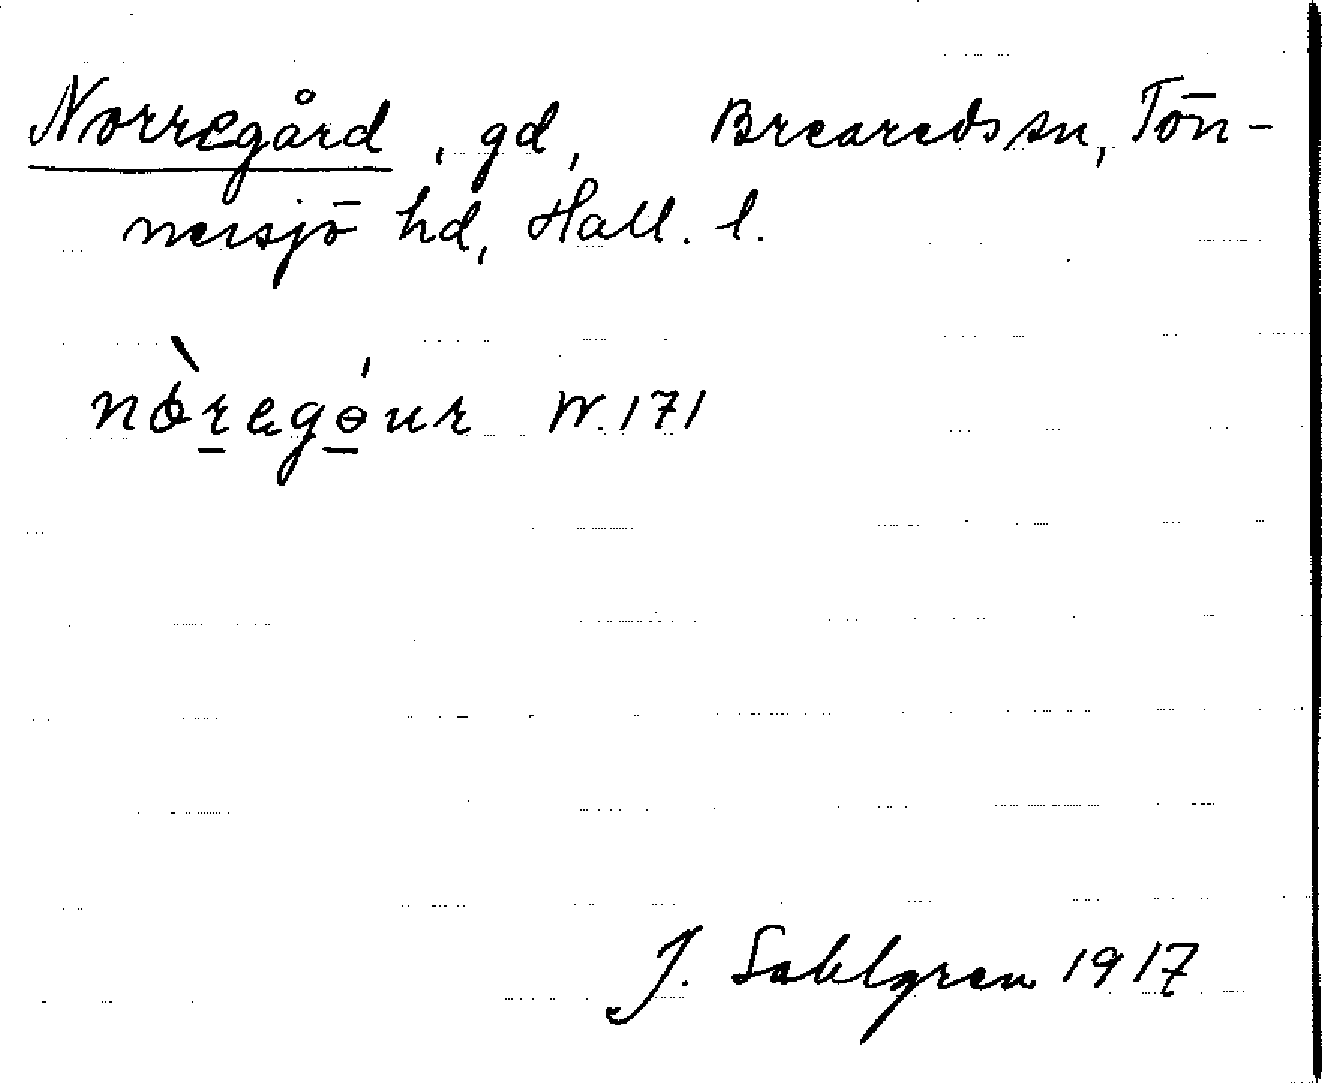 Norregård, gd, Breareds sn, Tön-
nersjö hd, Hall. l.
nòregǿur W. 171
J. Sahlgren 1917